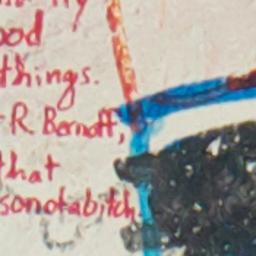 ood
things.
R Bernoff,
that
sonotabitch